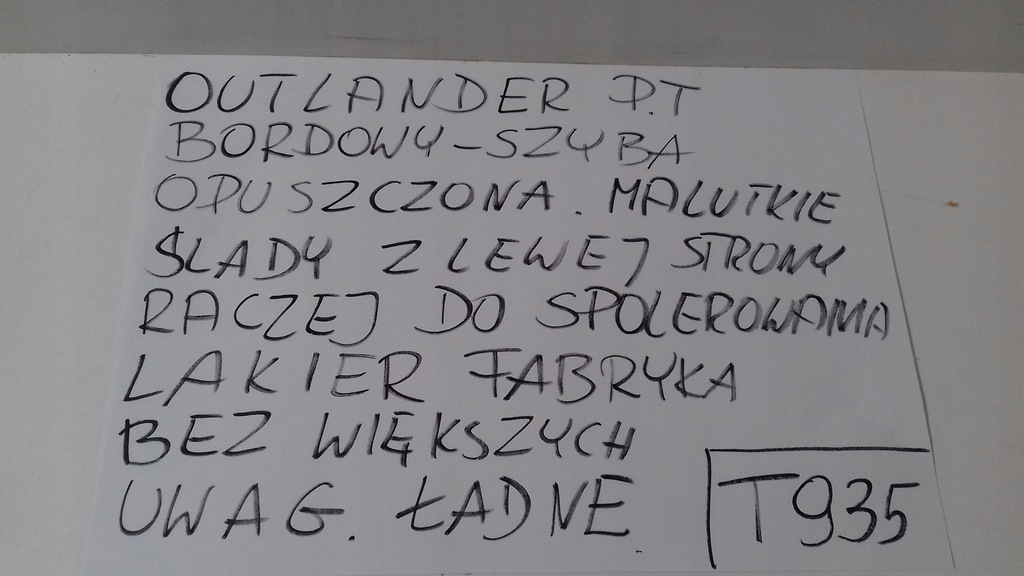 OUTLANDER P.T
BORDOWY-SZYBA
OPUSZCZONA. MALUTKIE
ŚLADY Z LEWEJ STRONY
RACZEJ DO SPOLEROWANIA
LAKIER FABRYKA
BEZ WIĘKSZYCH
UWAG. ŁADNE.
T935